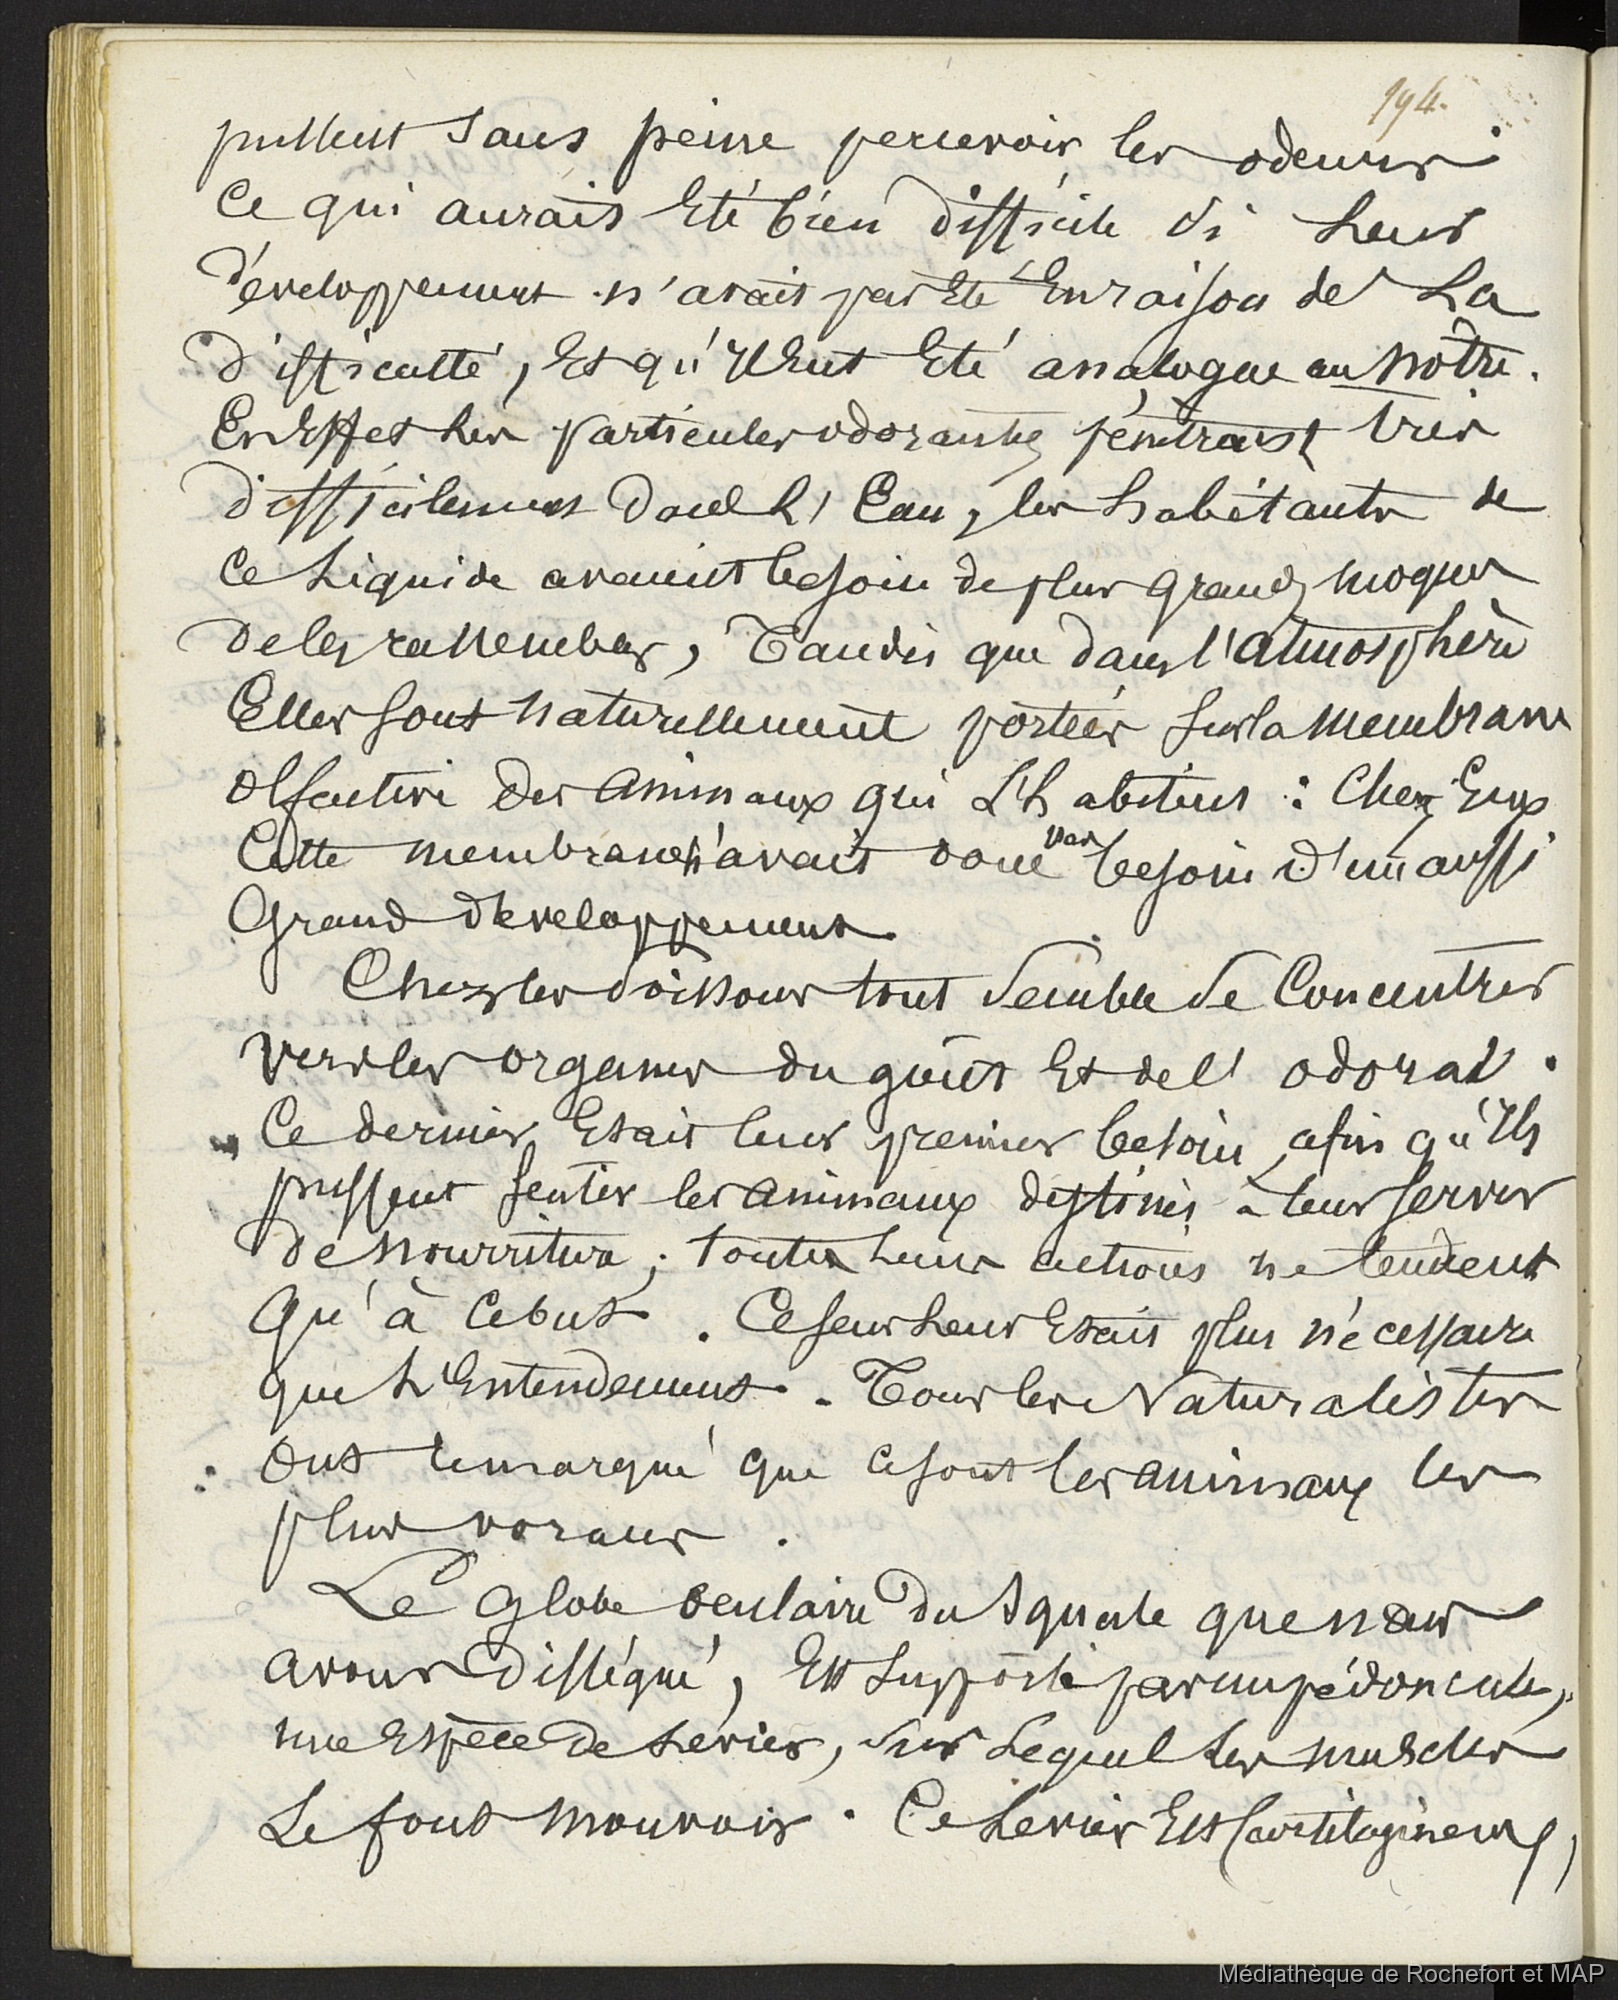 194.
pussent sans peine percevoir les odeurs.
Ce qui aurais Eté bien difficile si Leur
développement n'avait pas Eté En raison de La
difficulté, Et qu'Il Eut Eté analogue au nôtre.
En Effet Les particules odorantes pénétrant très
difficilement dans L'Eau, les habitants de
Ce Liquide avaient besoin de plus grands moyens
de les rassembler, Tandis que dans l'atmosphère
Elles sont naturellement portées sur la membrane
olfactive des animaux qui L'habitent : Chez Eux
Cette membrane n'avait donc pas besoin d'un aussi
Grand développement
Chez les poissons tout semble se Concentrer
vers les organes du goût Et de l'odorat.
Ce dernier Etait leur premier besoin, afin qu'Ils
pussent sentir les animaux destinés à leur servir
de nourriture ; toutes Leurs actions ne tendent
Qu'à ce but. Ce sens Leur Etait plus nécessaire
que L'Entendement. Tous les Naturalistes
Ont remarqué que ce sont les animaux les
plus voraces.
Le Globe oculaire du Squale que nous
avons disséqué, Est supporté par un pédoncule,
une Espèce de Levier, sur Lequel Les muscles
Le font mouvoir. Ce Levier Est Cartilagineux,
Médiathèque de Rochefort et MAP